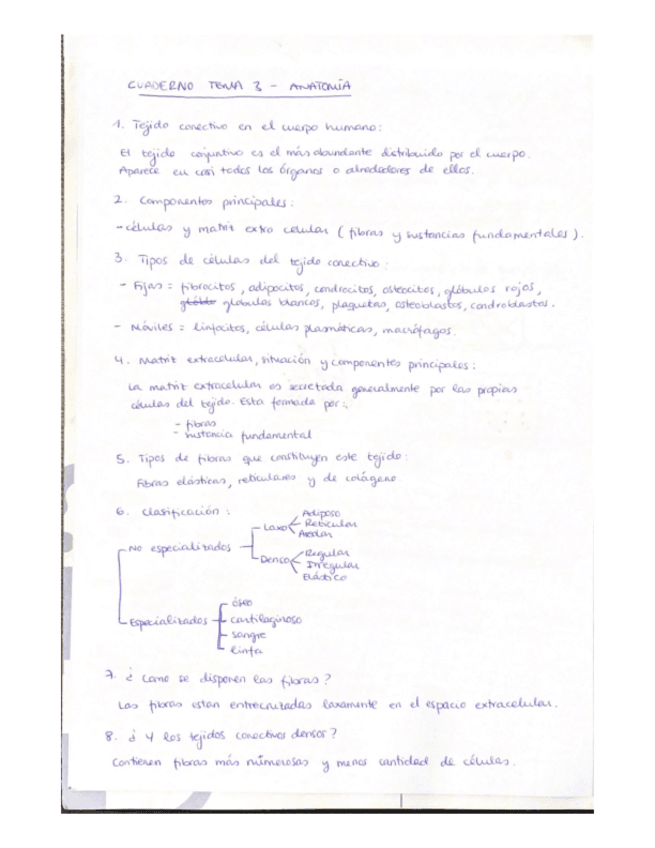 CUADERNO TEMA 3 - ANATOMÍA
1. Tejido conectivo en el cuerpo humano:
El tejido conjuntivo es el más abundante distribuido por el cuerpo.
Aparece en casi todos los órganos o alrededores de ellos.
2. Componentes principales:
- células y matriz extra celular ( fibras y sustancias fundamentales ).
3. Tipos de células del tejido conectivo:
- Fijas = fibrocitos, adipocitos, condrocitos, osteocitos, glóbulos rojos,
glóbulos blancos, plaquetas, osteoblastos, condroblastos.
- Móviles = linfocitos, células plasmáticas, macrófagos.
4. Matriz extracelular, situación y componentes principales:
La matriz extracelular es secretada generalmente por las propias
células del tejido. Esta formada por:
- fibras
- sustancia fundamental
5. Tipos de fibras que constituyen este tejido:
Fibras elásticas, reticulares y de colágeno.
6. Clasificación:
No especializados
Laxo
Adiposo
Reticular
Areolar
Denso
Regular
Irregular
Elástico
Especializados
óseo
cartilaginoso
sangre
linfa
7. ¿ Como se disponen las fibras ?
Las fibras estan entrecruzadas laxamente en el espacio extracelular.
8. ¿ Y los tejidos conectivos densos ?
Contienen fibras más numerosas y menos cantidad de células.